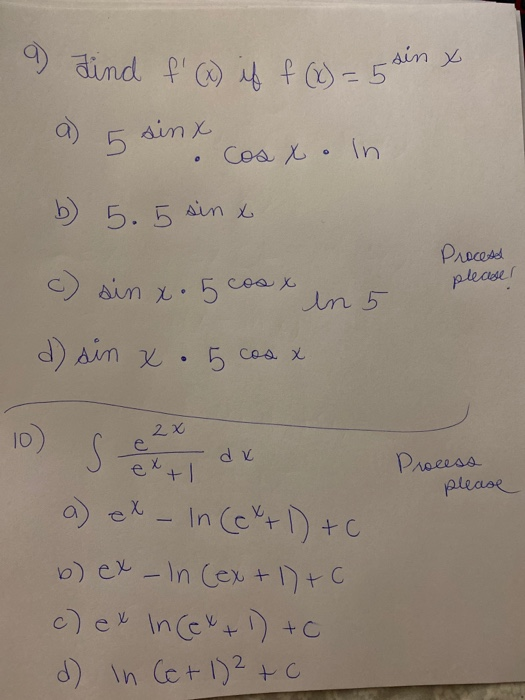 9) Find f'(x) if f(x) = 5^sin x
a) 5^sin x • cos x • ln
b) 5. 5^sin x
Process
please!
c) sin x • 5^cos x ln 5
d) sin x • 5^cos x
10) ∫ e^2x / e^x + 1 dx
Process
please
a) e^x - ln (e^x + 1) + C
b) e^x - ln (ex + 1) + C
c) e^x ln (e^x + 1) + C
d) ln (e + 1)^2 + C